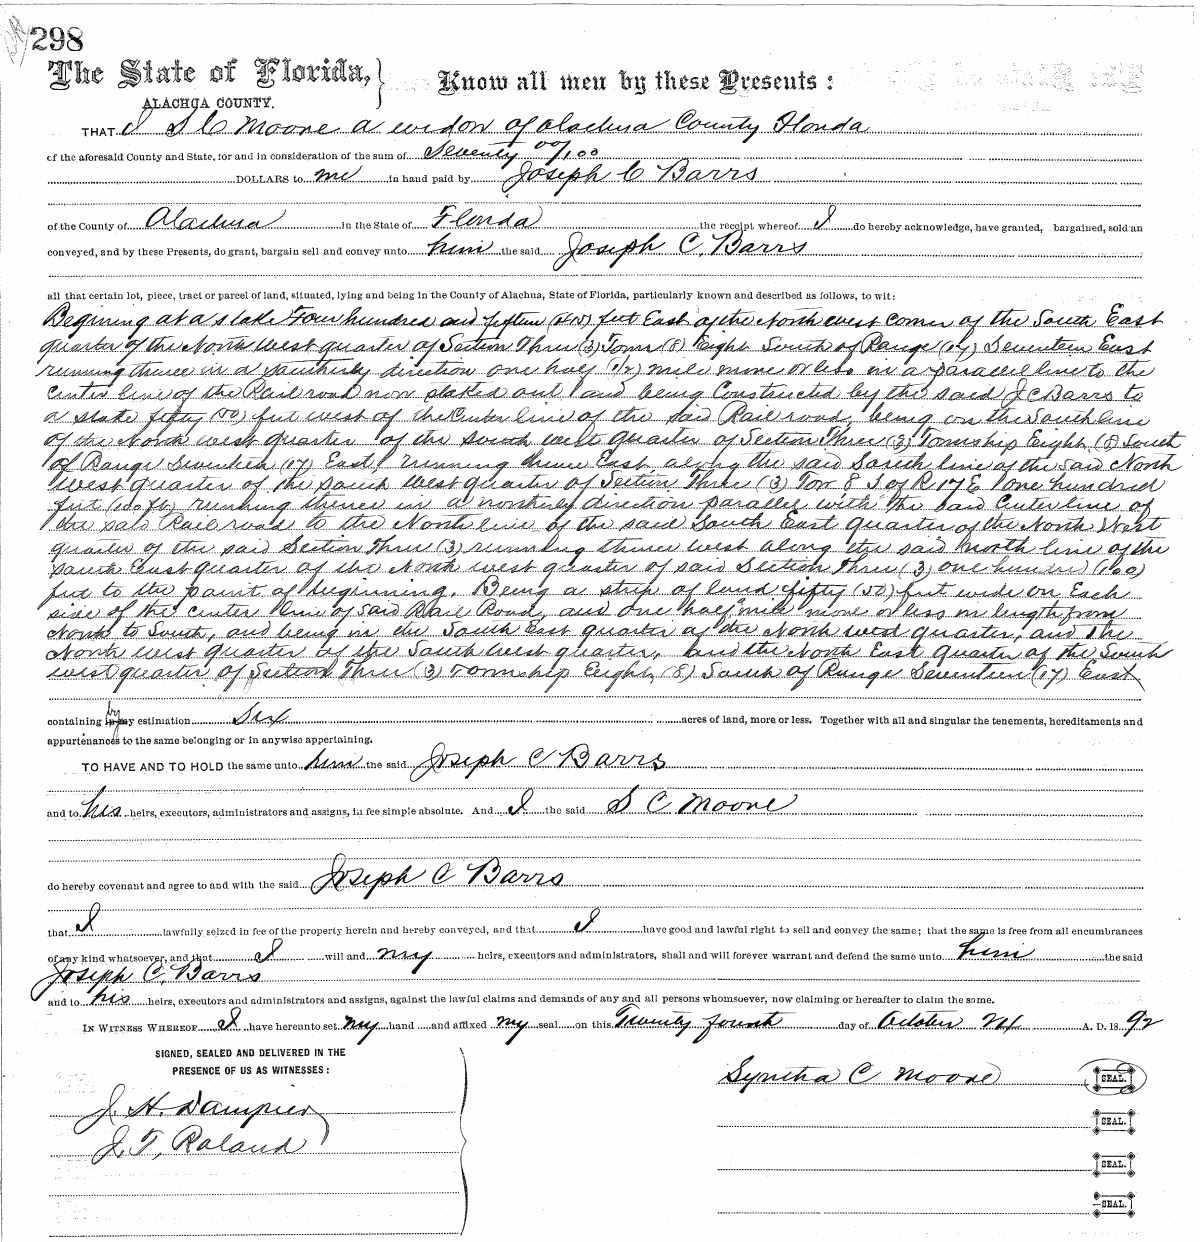 298
The State of Florida,
ALACHUA COUNTY.
Know all men by these Presents:
THAT I S C Moore a widow of Alachua County Florida
of the aforesaid County and State, for and in consideration of the sum of Seventy 00/100
DOLLARS to me in hand paid by Joseph C Barrs
of the County of Alachua in the State of Florida the receipt whereof I do hereby acknowledge, have granted, bargained, sold an
conveyed, and by these Presents, do grant, bargain sell and convey unto him the said Joseph C. Barrs
all that certain lot, piece, tract or parcel of land, situated, lying and being in the County of Alachua, State of Florida, particularly known and described as follows, to wit:
Begining at a stake Four hundred and fifteen (415) feet East of the North west corner of the South East
quarter of the North West quarter of Section Three (3) Town (8) Eight South of Range (17) Seventeen East
running thence in a southerly direction one half (1/2) mile more or less in a parallel line to the
center line of the Rail road now staked out and being Constructed by the said J C Barrs to
a stake fifty (50) feet west of the Center line of the said Rail road, being on the South line
of the North west quarter of the south west quarter of Section Three (3) Township Eight (8) South
of Range Seventeen (17) East, running thence East along the said South line of the said North
West quarter of the south west quarter of Section Three (3) Tow 8 S of R 17 E one hundred
feet (100 ft) running thence in a northerly direction parallel with the said Center line of
the said Rail road to the North line of the said South East quarter of the North West
quarter of the said Section Three (3) running thence west along the said north line of the
South East quarter of the North west quarter of said Section Three (3) one hundred (100)
feet to the point of beginning. Being a strip of land fifty (50) feet wide on Each
side of the center line of said Rail Road, and one half mile more or less in length from
North to South, and being in the South East quarter of the North west quarter, and the
North west quarter of the South West quarter, and the North East quarter of the South
west quarter of Section Three (3) Township Eight (8) South of Range Seventeen (17) East
containing by estimation Six acres of land, more or less. Together with all and singular the tenements, hereditaments and
appurtenances to the same belonging or in anywise appertaining.
TO HAVE AND TO HOLD the same unto him the said Joseph C Barrs
and to his heirs, executors, administrators and assigns, in fee simple absolute. And I the said S C Moore
do hereby covenant and agree to and with the said Joseph C Barrs
that I lawfully seized in fee of the property herein and hereby conveyed, and that I have good and lawful right to sell and convey the same; that the same is free from all encumbrances
of any kind whatsoever, and that I will and my heirs, executors and administrators, shall and will forever warrant and defend the same unto him the said
Joseph C. Barrs
and to his heirs, executors and administrators and assigns, against the lawful claims and demands of any and all persons whomsoever, now claiming or hereafter to claim the same.
IN WITNESS WHEREOF I have hereunto set my hand and affixed my seal on this Twenty fourth day of October 24 A. D. 18 92
SIGNED, SEALED AND DELIVERED IN THE
PRESENCE OF US AS WITNESSES:
Syntha C Moore SEAL.
J. H. Dampier
SEAL.
J. T. Roland
SEAL.
SEAL.